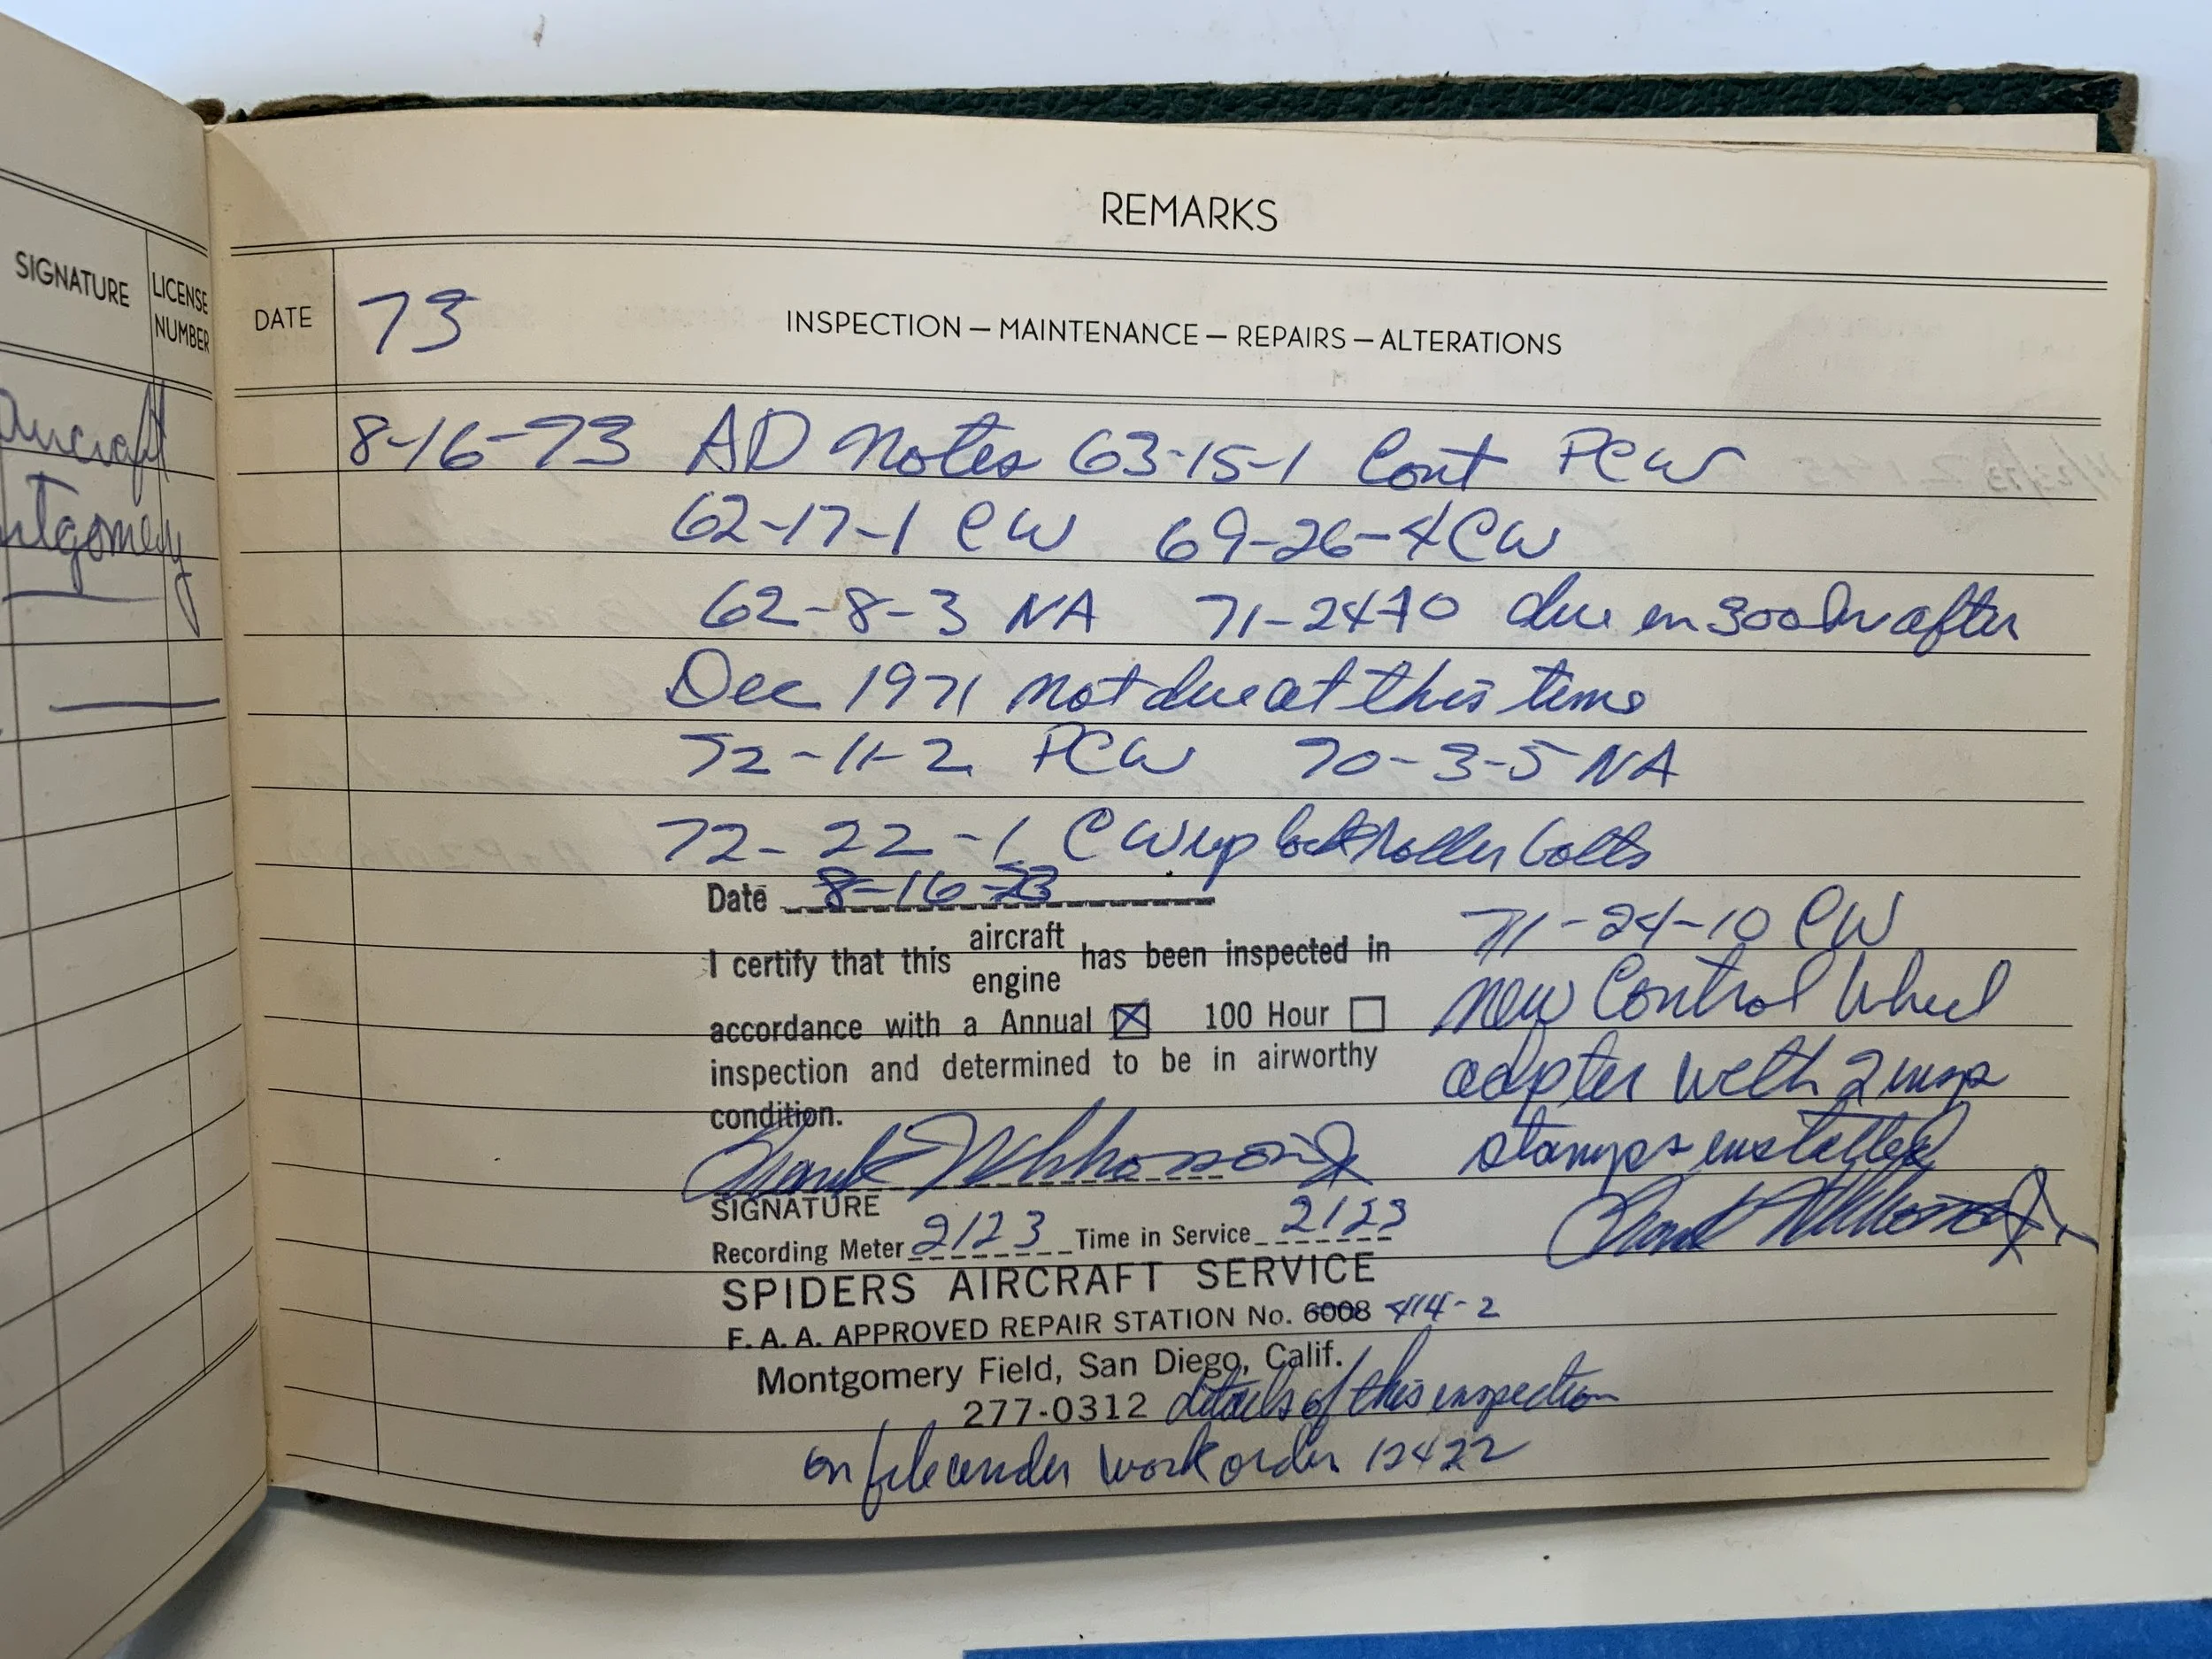 SIGNATURE
LICENSE
NUMBER
Aircraft
ntgomery
REMARKS
DATE 73 INSPECTION — MAINTENANCE — REPAIRS — ALTERATIONS
8-16-73 AD Notes 63-15-1 Cont PCW
62-17-1 CW 69-26-4 CW
62-8-3 NA 71-24-10 due en 300 hr after
Dec 1971 not due at this time
72-11-2 PCW 70-3-5 NA
72-22-1 CW up lock roller bolts
Date 8-16-73
I certify that this aircraft engine has been inspected in
accordance with a Annual ☒ 100 Hour ☐
inspection and determined to be in airworthy
condition.
71-24-10 CW
new Control Wheel
adpter with 2 insp
stamps installed
Frank
SIGNATURE
Recording Meter 2123 Time in Service 2123
SPIDERS AIRCRAFT SERVICE
F. A. A. APPROVED REPAIR STATION No. 6008 414-2
Montgomery Field, San Diego, Calif.
277-0312 details of this inspection
on file under work order 12422